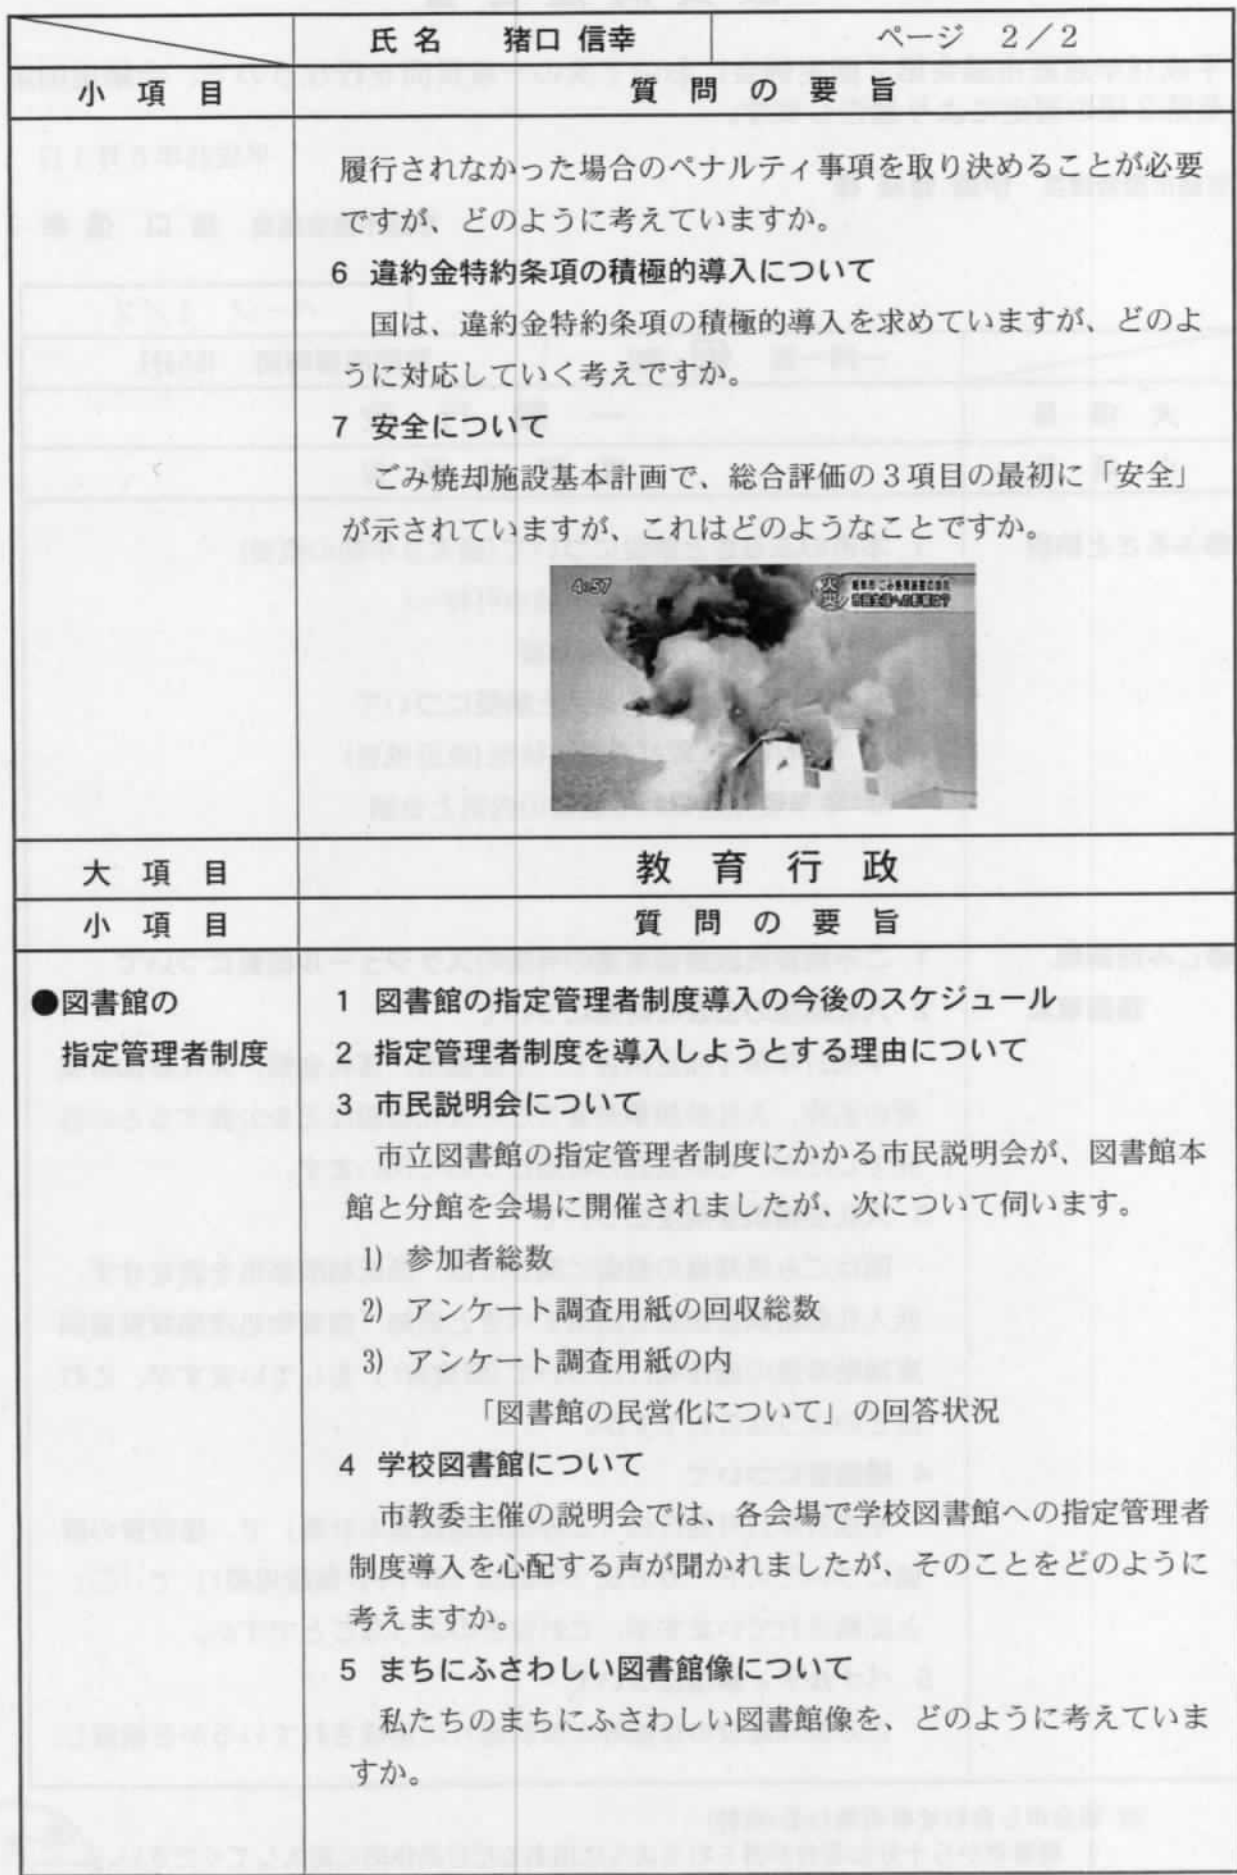 氏名 猪口 信幸 ページ 2/2
小項目 質問の要旨
履行されなかった場合のペナルティ事項を取り決めることが必要
ですが、どのように考えていますか。
6 違約金特約条項の積極的導入について
国は、違約金特約条項の積極的導入を求めていますが、どのよ
うに対応していく考えですか。
7 安全について
ごみ焼却施設基本計画で、総合評価の3項目の最初に「安全」
が示されていますが、これはどのようなことですか。
4:57
火災
大項目 教育行政
小項目 質問の要旨
●図書館の 1 図書館の指定管理者制度導入の今後のスケジュール
指定管理者制度 2 指定管理者制度を導入しようとする理由について
3 市民説明会について
市立図書館の指定管理者制度にかかる市民説明会が、図書館本
館と分館を会場に開催されましたが、次について伺います。
1) 参加者総数
2) アンケート調査用紙の回収総数
3) アンケート調査用紙の内
「図書館の民営化について」の回答状況
4 学校図書館について
市教委主催の説明会では、各会場で学校図書館への指定管理者
制度導入を心配する声が聞かれましたが、そのことをどのように
考えますか。
5 まちにふさわしい図書館像について
私たちのまちにふさわしい図書館像を、どのように考えていま
すか。